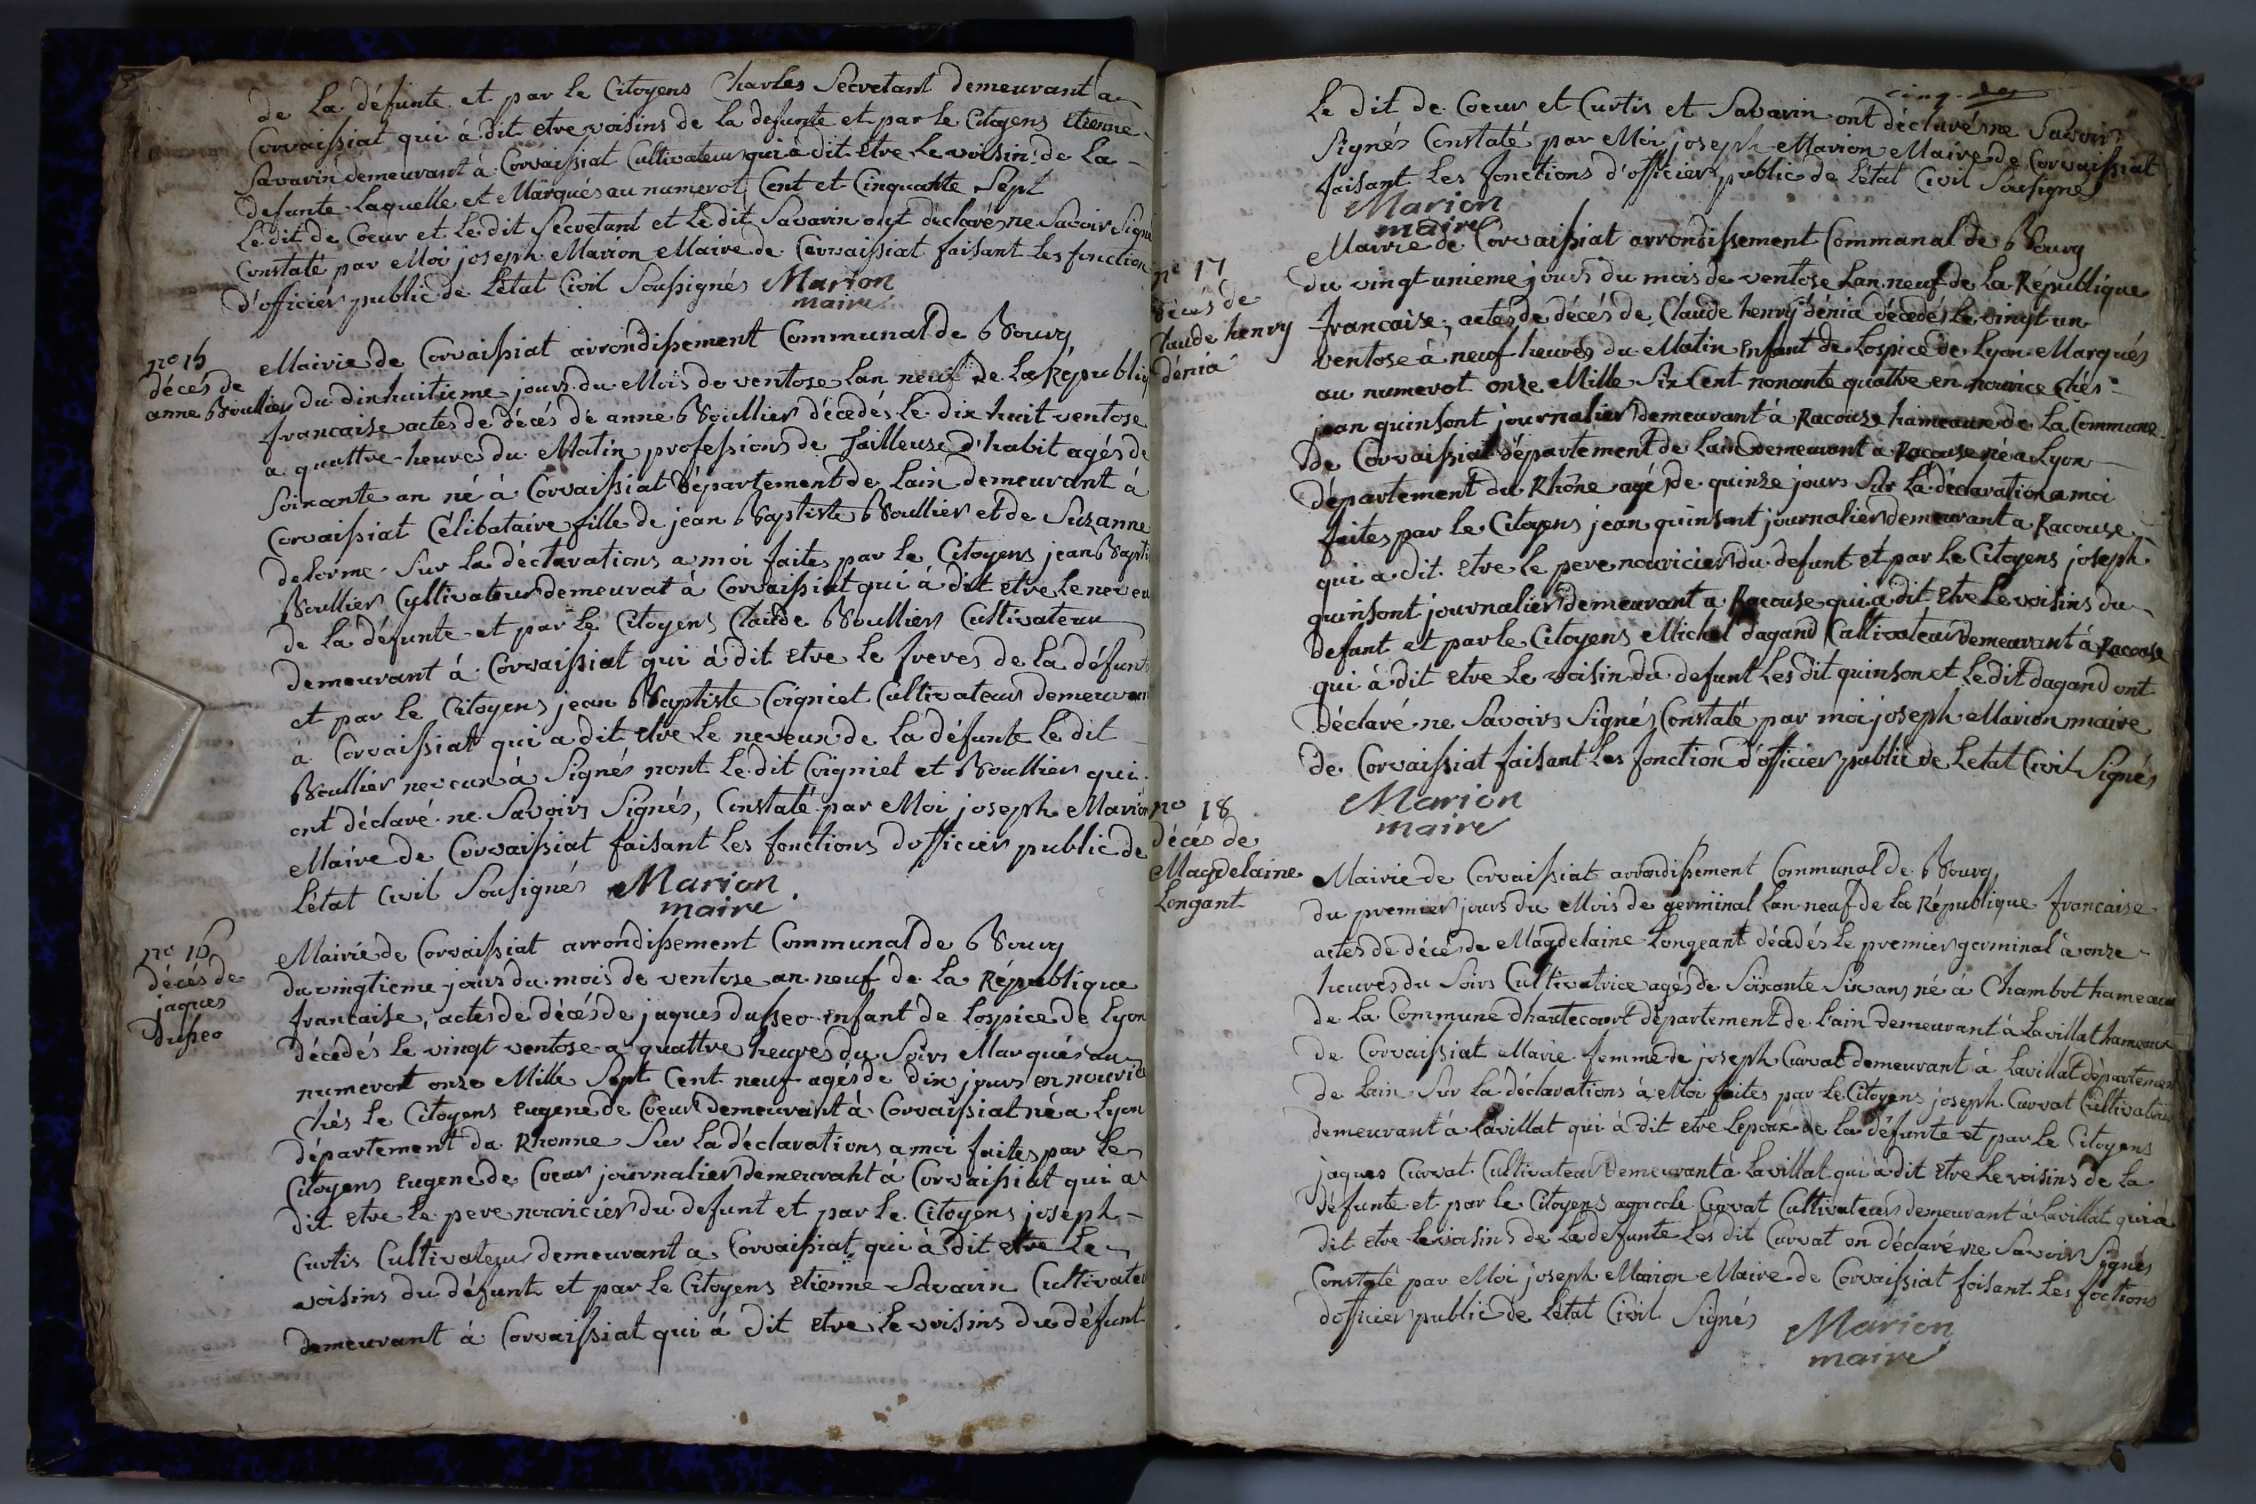 de La défunte et par Le Citoyens Charles Secretant demeurant a
Corvaissiat qui à dit etre voisins de La defunte et par Le Citoyens Etienne
Savarin demeurant à Corvaissiat Cultivateur qui à dit Etre Le voisin de La
defunte Laquelle et Marqués au numerot Cent et Cinquante Sept
Le dit de Coeur et Le dit Secretant et Le dit Savarin ont déclarés ne Savoir Signé
Constaté par Moi joseph Marion Maire de Corvaissiat faisant Les fonction
d'officier public de Létat Civil Soussignés Marion
maire
no 15
décés de
anne Boullier
Mairie de Corvaissiat arrondissement Communal de Bourg
du dixhuitieme jours du Mois de ventose Lan neuf de La Républiq
francaise actes de décés de anne Boullier décedés Le dix huit ventose
a quattre heures du Matin professions de Tailleuse d'habit agés de
Soixante an né à Corvaissiat Département de Lain demeurant à
Corvaissiat Célibataire fille de jean Baptiste Boullier et de Suzanne
delorme Sur La déclarations a moi faites par Le Citoyens jean Bapti
Boullier Cultivateur demeurat à Corvaissiat qui à dit etre Le neveu
de La défunte et par Le Citoyens Claude Boullier Cultivateur
demeurant à Corvaissiat qui à dit etre Le freres de La défunte
et par Le Citoyens jean Baptiste Coigniet Cultivateur demeurant
à Corvaissiat qui a dit etre Le neveux de La défunte Le dit
Boullier neveux à Signés nont Le dit Coigniet et Boullier qui
ont déclaré ne Savoirs Signés, Constaté par Moi joseph Marion
Maire de Corvaissiat faisant Les fonctions dofficier public de
Létat Civil Sousignés Marion
maire
no 16
décés de
jaques
Dusseo
Mairie de Corvaissiat arrondissement Communal de Bourg
du vingtieme jours du mois de ventose an neuf de La République
francaise, actes de décés de jaques dusseo Enfant de Lospice de Lyon
décédés Le vingt ventose a quattre heures du Soirs Marqués au
numerot onze Mille Sept Cent neuf agés de dix jours en nourice
Chés Le Citoyens Eugene de Coeur demeurant à Corvaissiat né a Lyon
département du Rhonne Sur La déclarations a moi faites par Le
Citoyens Eugene de Coeur journalier demeurant à Corvaissiat qui a
dit etre Le pere nouricier du defunt et par Le Citoyens joseph
Curtis Cultivateur demeurant a Corvaissiat qui à dit etre Le
voisins du défunt et par Le Citoyens Etienne Savarin Cultivateur
demeurant à Corvaissiat qui à dit etre Le voisins du défunt
cinq
Le dit de Coeur et Curtis et Savarin ont déclarés ne Savoir
Signés Constaté par Moi joseph Marion Maire de Corvaissiat
faisant Les fonctions d'officier public de Létat Civil Sousigné
Marion
maire
no 17
décés de
Claude henry
dénia
Mairie de Corvaissiat arrondissement Communal de Bourg
du vingt unieme jours du mois de ventose Lan neuf de La République
francaise, actes de décés de Claude henry dénia décedés Le vingt un
ventose à neuf heures du Matin Enfant de Lospice de Lyon Marqués
au numerot onze Mille Six Cent nonante quattre en nourice Chés
jean quinsont journalier demeurant à Racouze hameaux de La Commune
de Corvaissiat département de Lain demeurant a Racouse né a Lyon
département du Rhône agé de quinze jours Sur La déclaration a moi
faites par Le Citoyens jean quinsont journalier demeurant a Racouse
qui a dit Etre Le pere nouricier du defunt et par Le Citoyens joseph
quinsont journalier demeurant a Racouse qui à dit Etre Le voisins du
defunt et par Le Citoyens Michel dagand Cultivateur demeurant à Racouse
qui à dit etre Le voisin du defunt Les dit quinson et Le dit dagand ont
déclaré ne Savoirs Signés Constaté par moi joseph Marion maire
de Corvaissiat faisant Les fonction d'officier public de Letat Civil Signés
Marion
maire
no 18
décés de
Magdelaine
Longant
Mairie de Corvaissiat arrondissement Communal de Bourg
du premier jours du Mois de germinal Lan neuf de La République francaise
actes de décé de Magdelaine Longeant décedés Le premier germinal à onze
heures du Soirs Cultivatrice agés de Soixante Six ans né à Chambot hameaux
de La Commune dhautecourt département de L'ain demeurant à Lavillat hameaux
de Corvaissiat Marie femme de joseph Curvat demeurant à Lavillat départemen
de Lain Sur La déclarations à Moi faites par Le Citoyens joseph Curvat Cultivateur
demeurant à Lavillat qui à dit etre Lepoux de La défunte et par Le Citoyens
jaques Curvat Cultivateur demeurant à Lavillat qui à dit Etre Le voisins de La
défunte et par Le Citoyens agricole Curvat Cultivateur demeurant à Lavillat qui à
dit etre Le voisins de La defunte Les dit Curvat on déclaré ne Savoir Signés
Constaté par Moi joseph Marion Maire de Corvaissiat faisant Les foctions
dofficier public de Létat Civil Signés
Marion
maire